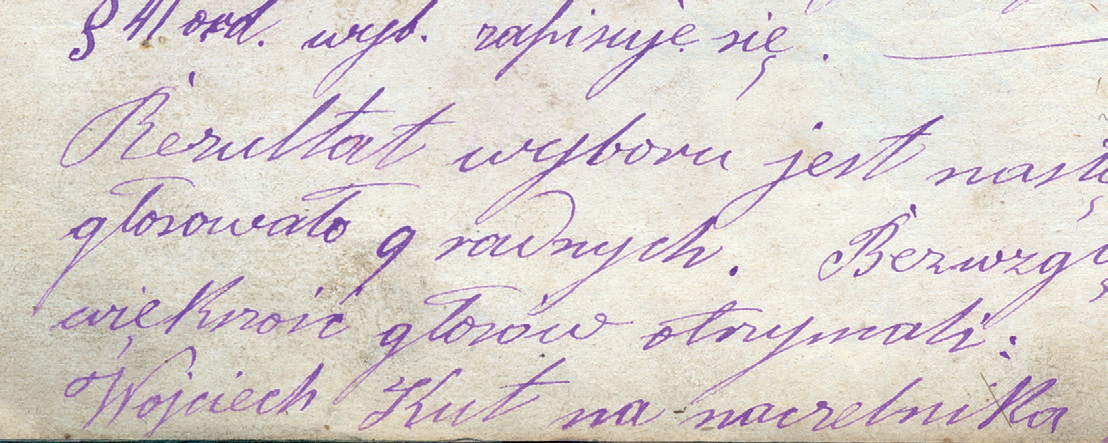 § 41 ord. wyb. zapisuje się. —
Rezultat wyboru jest nastę
głosowało 9 radnych. Bezwzglę
większość głosów otrzymali:
Wojciech Kut na naczelnika